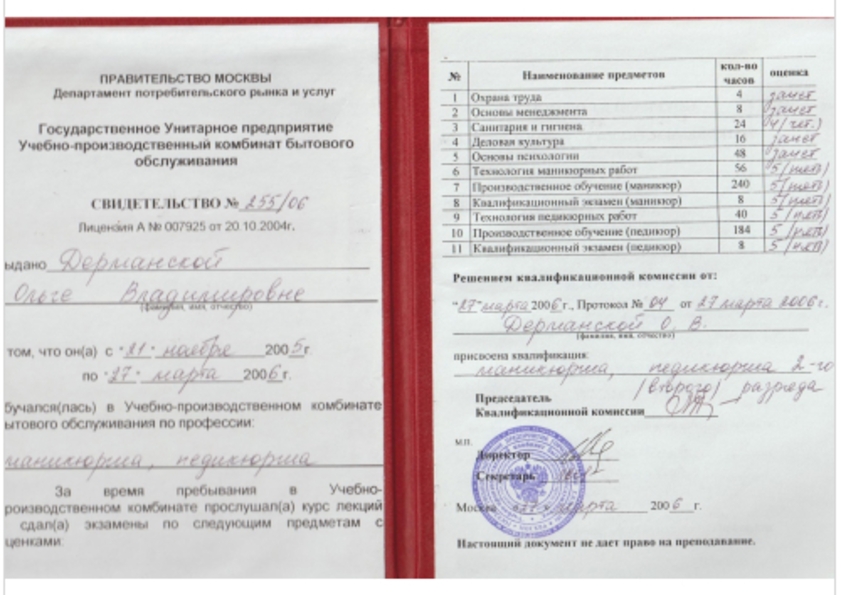 ПРАВИТЕЛЬСТВО МОСКВЫ
Департамент потребительского рынка и услуг
Государственное Унитарное предприятие
Учебно-производственный комбинат бытового
обслуживания
СВИДЕТЕЛЬСТВО № 255/06
Лицензия А № 007925 от 20.10.2004г.
ыдано Дерманской
Ольге Владимировне
(фамилия, имя, отчество)
том, что он(а) с "21" ноября 2005г
по "27" марта 2006г.
бучался(лась) в Учебно-производственном комбинате
ытового обслуживания по профессии:
маникюрша, педикюрша
За время пребывания в Учебно-
роизводственном комбинате прослушал(а) курс лекций
сдал(а) экзамены по следующим предметам с
ценками:
№ Наименование предметов кол-во часов оценка
1 Охрана труда 4 зачет
2 Основы менеджмента 8 зачет
3 Санитария и гигиена 24 4 (чет.)
4 Деловая культура 16 зачет
5 Основы психологии 48 зачет
6 Технология маникюрных работ 56 5
7 Производственное обучение (маникюр) 240 5
8 Квалификационный экзамен (маникюр) 8 5
9 Технология педикюрных работ 40 5
10 Производственное обучение (педикюр) 184 5
11 Квалификационный экзамен (педикюр) 8 5
Решением квалификационной комиссии от:
"27" марта 2006г., Протокол № 04 от 27 марта 2006г.
Дерманской О. В.
(фамилия, имя, отчество)
присвоена квалификация:
маникюрша, педикюрша 2-го
(второго) разряда
Председатель
Квалификационной комиссии
М.П.
Директор
Секретарь
Москва "27" марта 2006г.
Настоящий документ не дает право на преподавание.